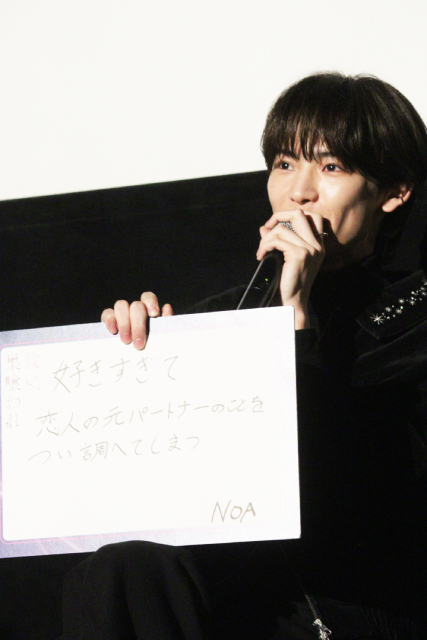 好きすぎて
恋人の元パートナーのことを
つい調べてしまう
NOA